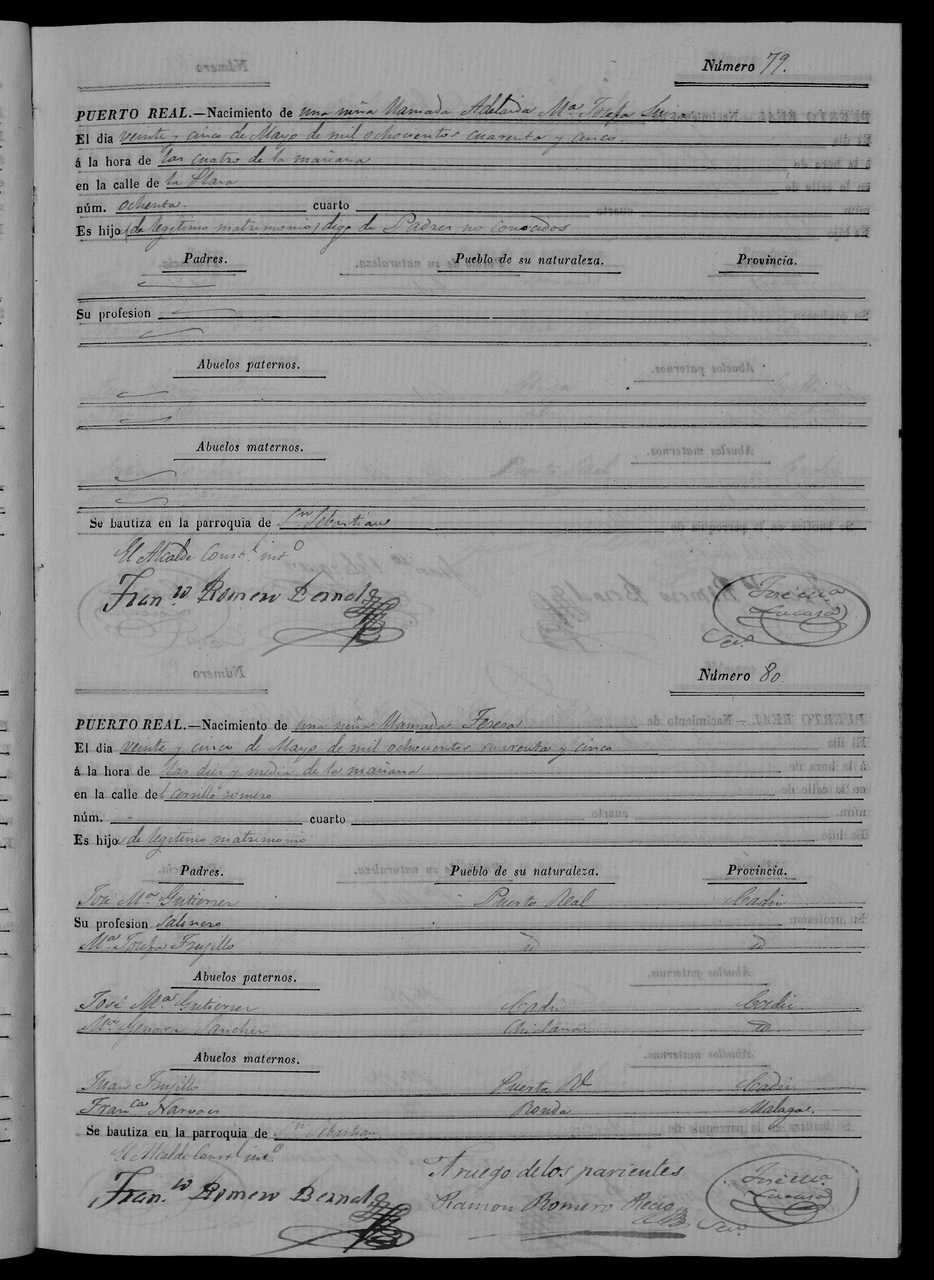 Número 79.
PUERTO REAL.—Nacimiento de una niña llamada Adelaida Mª Josefa Luisa
El dia veinte y cinco de Mayo de mil ochocientos cuarenta y cinco.
á la hora de las cuatro de la mañana
en la calle de la Plaza
núm. ochenta. cuarto
Es hijo (de legitimo matrimonio) digo de Padres no conocidos
Padres. Pueblo de su naturaleza. Provincia.
Su profesion
Abuelos paternos.
Abuelos maternos.
Se bautiza en la parroquia de Sn Sebastian
El Alcalde Constl. intº
Franco Romero Bernal
José Mª Lucas
Srio.
Número 80
PUERTO REAL.—Nacimiento de una niña llamada Teresa
El dia veinte y cinco de Mayo de mil ochocientos cuarenta y cinco
á la hora de las diez y media de la mañana
en la calle del cerrillo romero
núm. cuarto
Es hijo de legitimo matrimonio
Padres. Pueblo de su naturaleza. Provincia.
José Mª Gutierrez Puerto Real Cadiz
Su profesion Salinero
Mª Josefa Trujillo id id
Abuelos paternos.
José Mª Gutierrez Cadiz Cadiz
Mª Genova Sanchez Chiclana id
Abuelos maternos.
Juan Trujillo Puerto Rl Cadiz
Franca Narvaez Ronda Malaga.
Se bautiza en la parroquia de Sn Sebastian
El Alcalde Constl intº
Franco Romero Bernal
A ruego de los parientes
Ramon Romero Recio
José Mª Lucas
Srio.